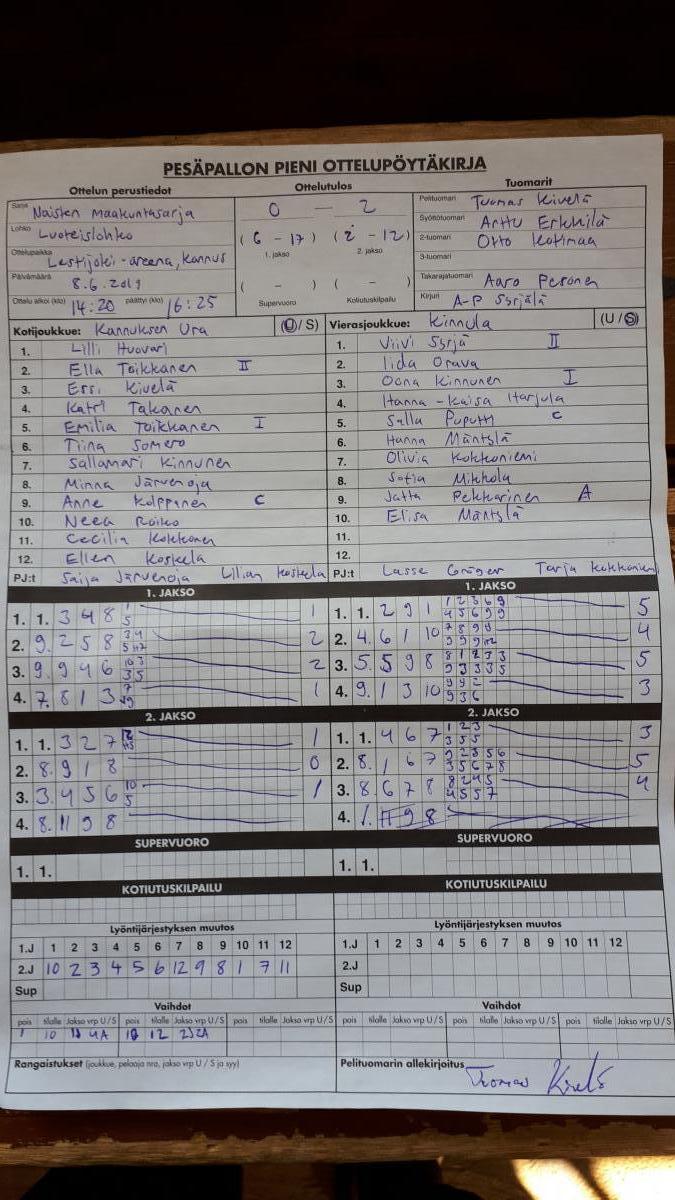 PESÄPALLON PIENI OTTELUPÖYTÄKIRJA
Ottelun perustiedot
Sarja Naisten Maakuntasarja
Lohko Luoteislohko
Ottelupaikka Lestijoki-areena, Kannus
Päivämäärä 8.6.2019
Ottelu alkoi (klo) 14:20 päättyi (klo) 16:25
Ottelutulos
0 — 2
(6 - 17) (2 - 12)
1. jakso 2. jakso
( - ) ( - )
Supervuoro Kotiutuskilpailu
Tuomarit
Pelituomari Tuomas Kivelä
Syöttötuomari Arttu Erkkilä
2-tuomari Otto Kotimaa
3-tuomari
Takarajatuomari Aaro Pesonen
Kirjuri A-P Syrjälä
Kotijoukkue: Kannuksen Ura (U/S)
1. Lilli Huovari
2. Ella Toikkanen II
3. Essi Kivelä
4. Katri Takanen
5. Emilia Toikkanen I
6. Tiina Somero
7. Sallamari Kinnunen
8. Minna Järvenoja
9. Anne Kolppanen C
10. Neea Roiko
11. Cecilia Kokkonen
12. Ellen Koskela
PJ:t Saija Järvenoja Lilian Koskela
Vierasjoukkue: Kinnula (U/S)
1. Viivi Syrjä II
2. Iida Orava
3. Oona Kinnunen I
4. Hanna-Kaisa Harjula
5. Salla Puputti C
6. Hanna Mäntylä
7. Olivia Kokkoniemi
8. Sofia Mikkola
9. Jatta Pekkarinen A
10. Elisa Mäntylä
11.
12.
PJ:t Lasse Gröger Tarja Kokkoniemi
1. JAKSO
1. 1. 3 4 8 1
2. 9. 2 5 8 2
3. 9. 9 4 6 2
4. 7. 8 1 3 1
2. JAKSO
1. 1. 3 2 7 1
2. 8. 9 1 8 0
3. 3. 4 5 6 10 5 1
4. 8. 11 9 8
SUPERVUORO
1. 1.
KOTIUTUSKILPAILU
1. JAKSO
1. 1. 2 9 1 1 2 3 6 9 4 5 6 9 9 5
2. 4. 6 1 10 4
3. 5. 5 9 8 8 1 2 3 3 9 3 3 3 5 5
4. 9. 1 3 10 9 9 2 9 3 6 3
2. JAKSO
1. 1. 4 6 7 1 2 3 3 5 5 3
2. 8. 1 6 7 9 2 3 5 6 3 5 6 7 8 5
3. 8. 6 7 8 8 2 4 5 4 5 5 7 4
4. 1. 9 8
SUPERVUORO
1. 1.
KOTIUTUSKILPAILU
Lyöntijärjestyksen muutos
1.J 1 2 3 4 5 6 7 8 9 10 11 12
2.J 10 2 3 4 5 6 12 9 8 1 7 11
Sup
Vaihdot
pois tilalle Jakso vrp U/S pois tilalle Jakso vrp U/S pois tilalle Jakso vrp U/S
1 10 4A 12 2J2A
Rangaistukset (joukkue, pelaaja nro, jakso vrp U / S ja syy)
Lyöntijärjestyksen muutos
1.J 1 2 3 4 5 6 7 8 9 10 11 12
2.J
Sup
Vaihdot
pois tilalle Jakso vrp U/S pois tilalle Jakso vrp U/S pois tilalle Jakso vrp U/S
Pelituomarin allekirjoitus Tuomas Kivelä